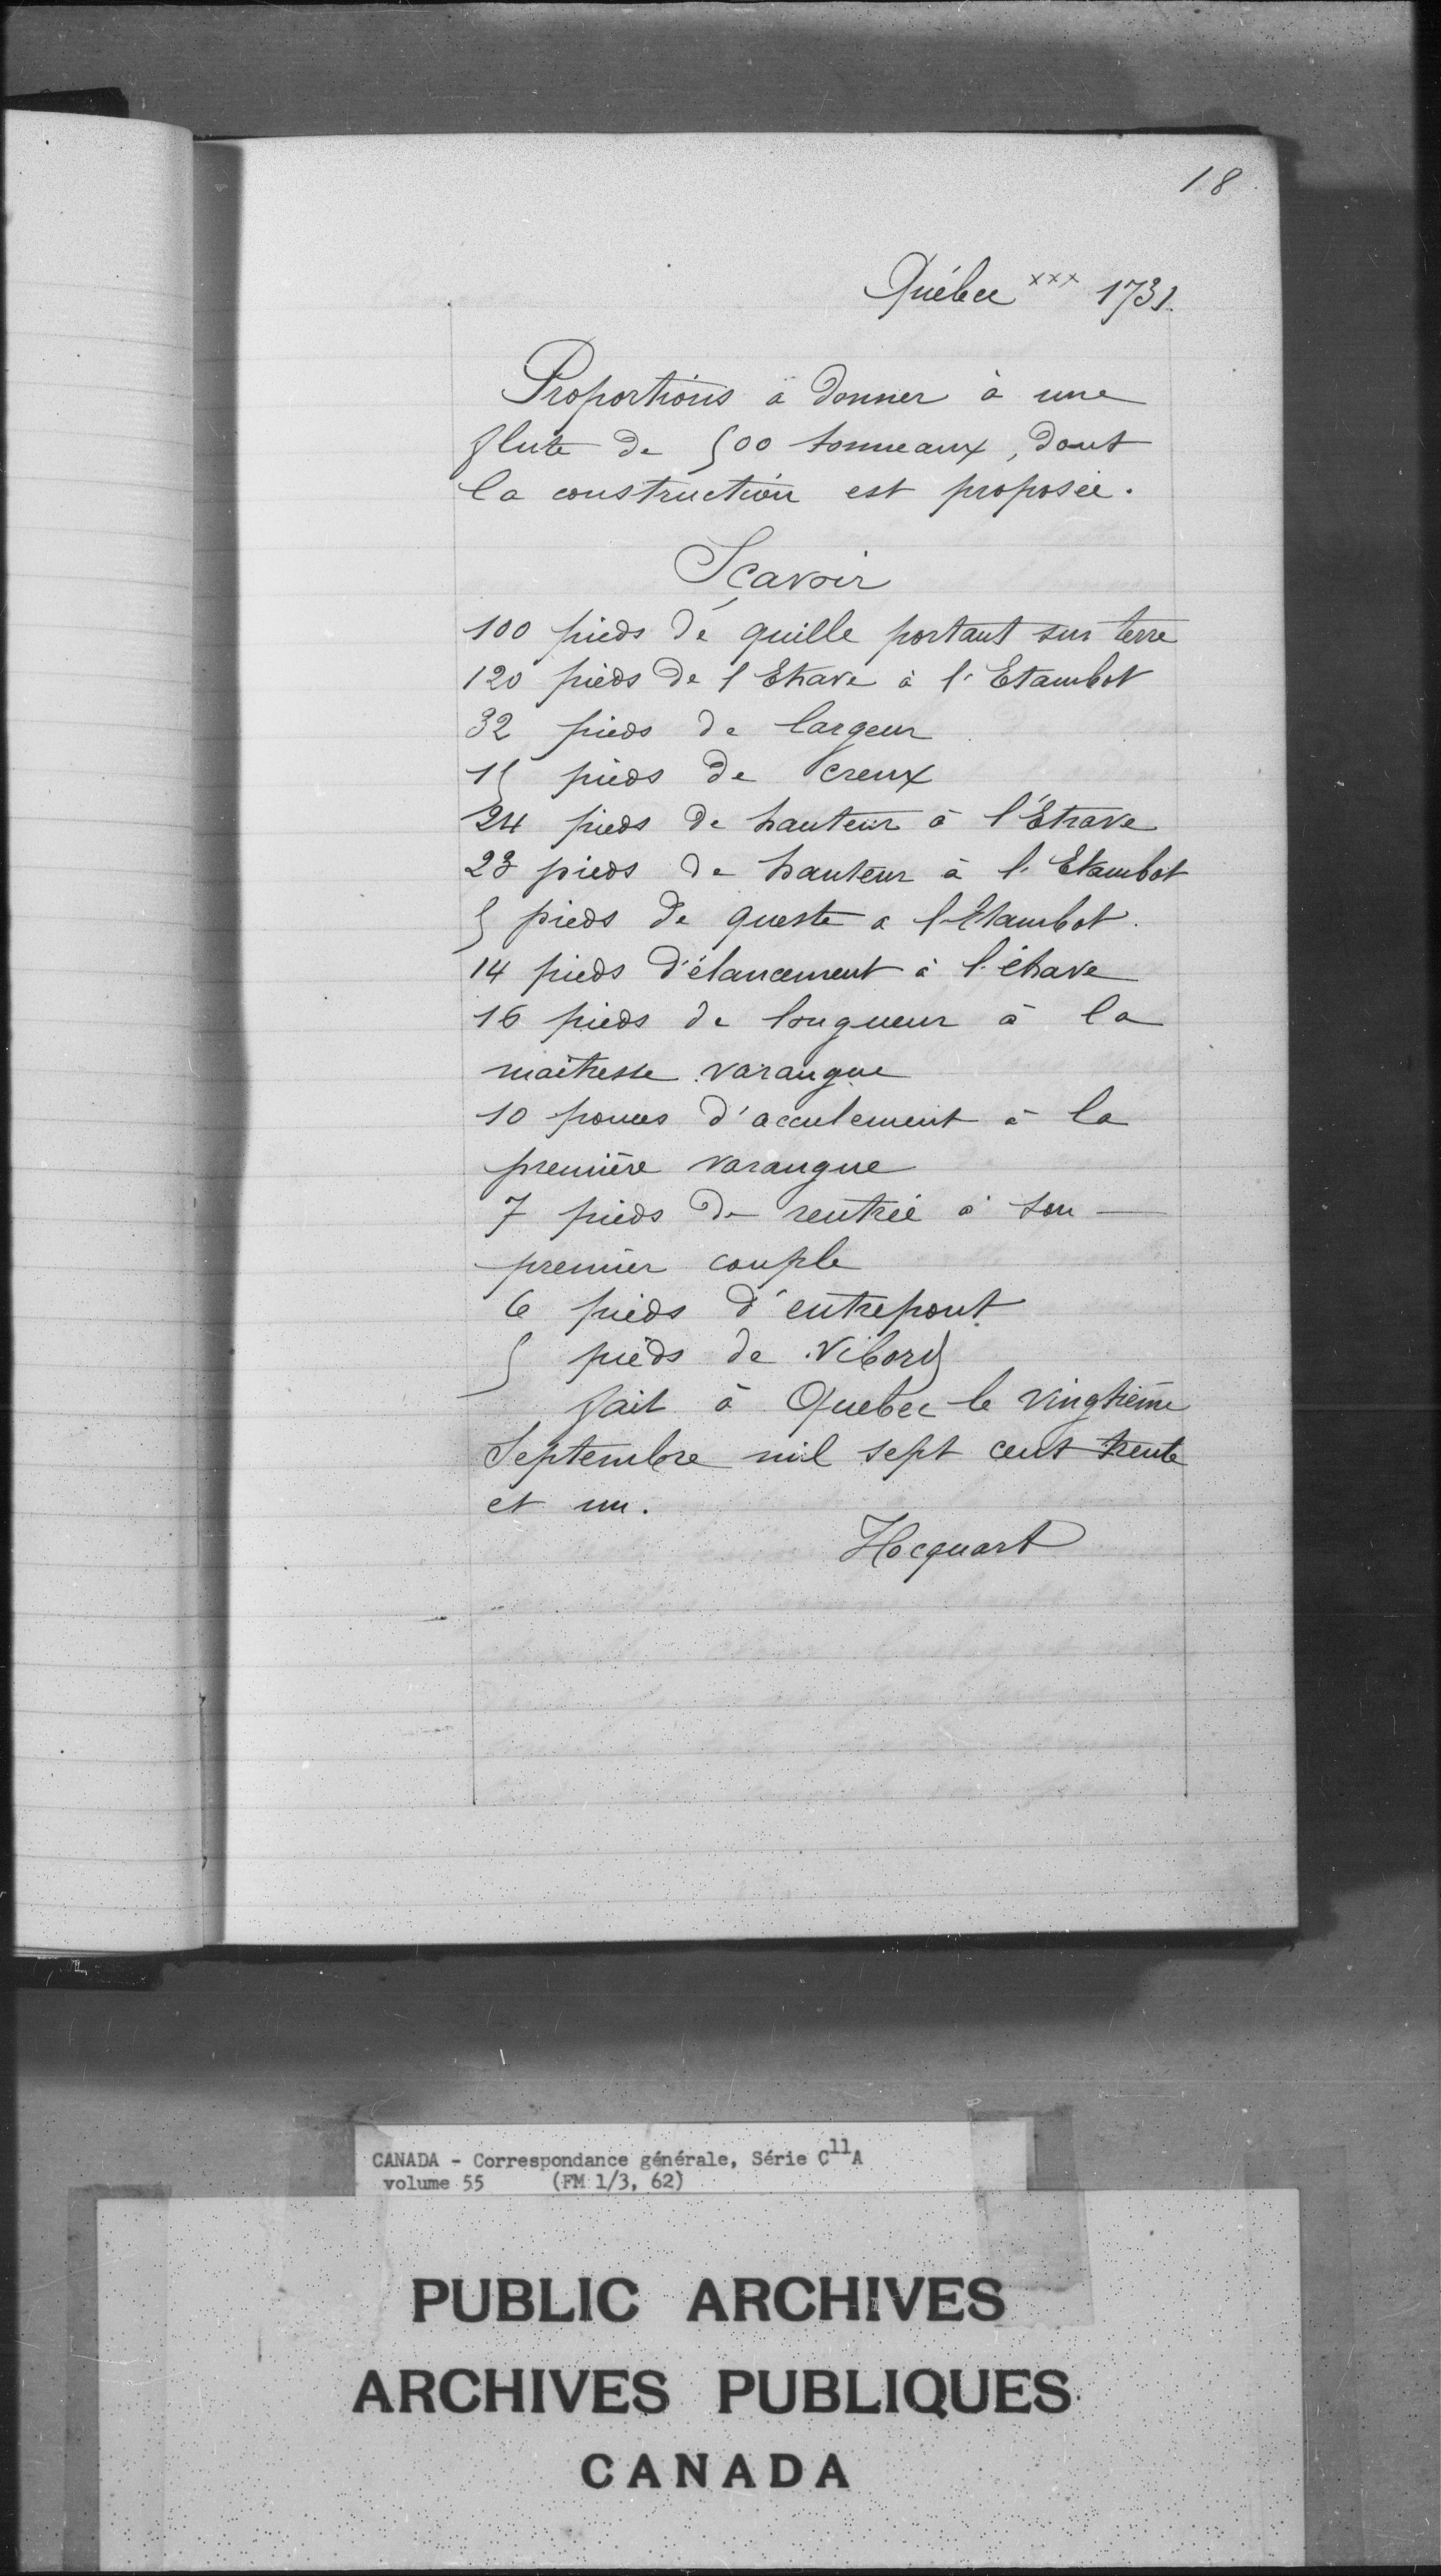 18
Québec xxx 1731.
Proportions à donner à une
flute de 500 tonneaux, dont
la construction est proposée.
Sçavoir
100 pieds de quille portant sur terre
120 pieds de l'Etrave à l'Etambot
32 pieds de largeur
15 pieds de creux
24 pieds de hauteur à l'Étrave
23 pieds de hauteur à l'Etambot
5 pieds de queste a l'Etambot.
14 pieds d'élancement à l'étrave
16 pieds de longueur à la
maîtresse varangue
10 pouces d'acculement à la
première varangue
7 pieds de rentrée à son —
premier couple
6 pieds d'entrepont
5 pieds de Vibord
fait à Quebec le vingtième
Septembre mil sept cent trente
et un.
Hocquart
CANADA - Correspondance générale, Série C11A
volume 55 (FM 1/3, 62)
PUBLIC ARCHIVES
ARCHIVES PUBLIQUES
CANADA